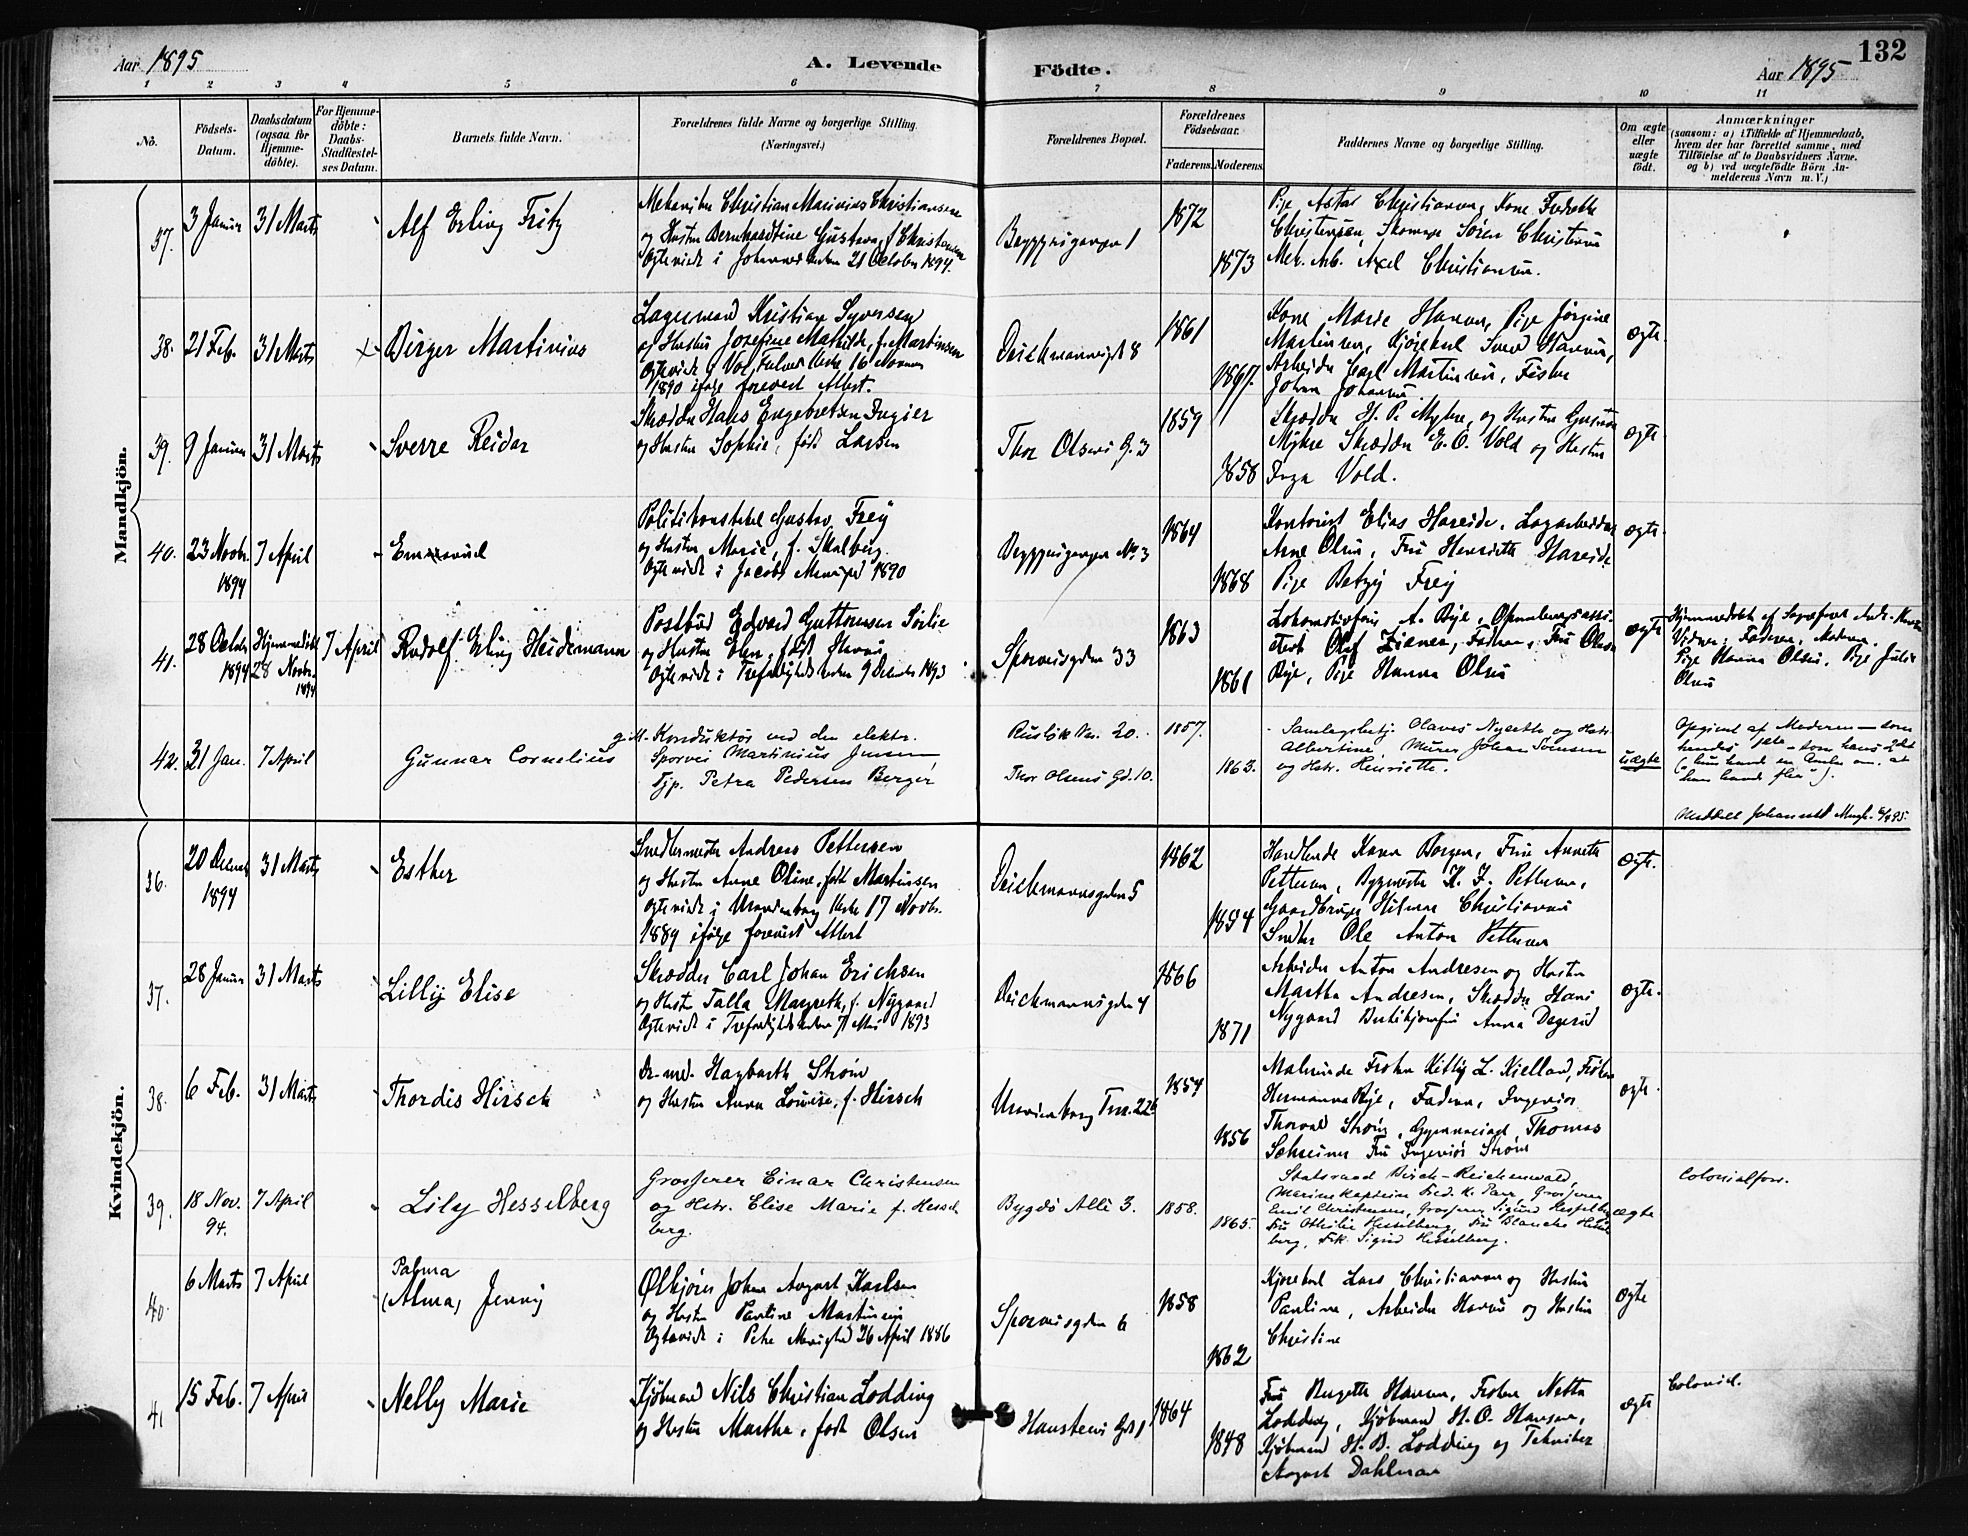 Aar 1895
A. Levende
Födte.
Aar 1895
132
1 2 3 4 5 6 7 8 9 10 11
No.
Födsels-
Datum.
Daabsdatum
(ogsaa for
Hjemme-
döbte).
For Hjemme-
döbte:
Daabs-
Stadfæstel-
ses Datum.
Barnets fulde Navn.
Forældrenes fulde Navne og borgerlige Stilling.
(Næringsvei.)
Forældrenes Bopæl.
Forældrenes
Födselsaar.
Faderens. Moderens.
Faddernes Navne og borgerlige Stilling.
Om ægte
eller
uægte
födt.
Anmærkninger
(saasom: a) i Tilfælde af Hjemmedaab,
hvem der har forrettet samme, med
Tilföielse af to Daabsvidners Navne,
og b) ved uægtefödte Börn An-
melderens Navn m. V.)
Mandkjön.
37. 3 Januar 31 Marts
Alf Erling Fritz
Mekaniker Christian Marinius Christiansen
og Hustru Bernhardtine Gustava, f. Christensen
Ægteviet i Johannes kirken 21 October 1894.
1
1872
1873
Pige Astar Christiansen, Kone
Christensen, Skomager Sören Christensen
Mek. Arb. Axel Christiansen.
38. 21 Feb. 31 Marts
Birger Martinius
Lagermand Kristian Syversen
og Hustru Josefine Mathilde, f. Martinsen
Ægteviet i Kirke 16 Novemb
1890 ifølge forevist Attest.
Deichmannsgd 8
1861
1867.
Kone Marie Hansen, Pige Jørgine
Martinsen, Kjørekarl Hansen,
Arbeider Carl Martinsen, Fisker
Johan Johansen
ægte.
39. 9 Januar 31 Marts
Sverre Reidar
Skrædder Hans Engebretsen Ingier
og Hustru Sophie, født Larsen
Thor Olsens G. 3
1859
1858
Skrædder H. P. Myhre, og Hustru
Myhre Skrædder E. O. Vold og Hustru
Inga Vold.
ægte
40. 23 Novbr. 7 April
1894
Emanuel
Politikonstabel Gustav Frey
og Hustru Marie, f. Skalberg.
Ægteviet i Jacobs Menighed 1890
No. 3
1864
1868
Kontorist Elias Hareide, Lagerarbeider
Arne Olsen, Fru Henriette Hareide
Pige Betzy Frey
ægte.
41. 28 October Hjemmedøbt 7 April
1894 28 Novbr.
1894
Rudolf Erling Heidemann
Postbud Edvard Guttormsen Sørlie
og Hustru Elen, født Hansen
Ægteviet i Trefoldigheds kirken 9 December 1893
Sporveisgaden 33
1863
1861
Lokomotivfører A. Bye,
Olaf Faderen, Fru Olava
Bye, Pige Hanna Olsen
ægte
Hjemmedøbt af Sognepræst
Vidner: Faderen, Moderen
Pige Hanna Olsen, Pige Julie
Olsen
42. 21 Jan. 7 April
Gunnar Cornelius
g. M. Konduktør ved den elektr.
Sporvei Martinius Jensen
Tjp. Petra Pedersen Berger
Rusløkvn. 20.
Thor Olsens Gd. 10.
1857.
1863.
Samlagsbetj. Olaves og Hstr.
Albertine, Murer Johan Tomsen
og Hstr. Henriette.
uægte
Opgivet af Moderen — som
hendes — som hans 2det
(
flere").
Meddelt Johannes Mngh. 95.
Kvindekjön.
36. 20 Decemb 31 Marts
1894
Esther
Snedkermester Andreas Pettersen
og Hustru Anne Oline, født Martinsen
Ægteviet i Uranienborg Kirke 17 Novbr.
1889 ifølge forevist Attest
Deichmannsgaden 5
1862
1854
Handlende Karen Borgen, Frue Annette
Pettersen, Bygmester K. J. Pettersen,
Gaardbruger Hilmar Christiansen
Snedker Ole Anton Pettersen
ægte.
37. 28 Januar 31 Marts
Lilly Elise
Skrædder Carl Johan Erichsen
og Hustru Talla Margreth, f. Nygaard
Ægteviet i Trefoldighedskirken 7 Mai 1893
Deichmannsgaden 4
1866
1871
Arbeider Anton Andresen og Hustru
Martha Andresen, Skrædder Hans
Nygaard Butikjomfru Anna
ægte.
38. 6 Feb. 31 Marts
Thordis Hirsch
Dr. med. Hagbarth Strøm
og Hustru Anna Lovise, f. Hirsch
Uranienborg Terr.
1854
1856
Malerinde Frøken Kitty L. Kielland, Frøken
Hermanna Bye, Faderen, Ingeniør
Thorvald Strøm, Gymnasiast Thomas
Schreiner Fru Ingeniør Strøm
ægte.
39. 18 Nov. 7 April
94.
Lily Hesselberg
Grosserer Einar Christensen
og Hstr. Elise Marie f. Hessel-
berg.
Bygdø Allé 3.
1858.
1865.
Statsraad Birch-Reichenwald,
Marinekaptein Fred. K. Parr, Grosserer
Emil Christensen, Grosserer Sigurd Hesselberg
Fru Othilie Hesselberg, Fru Blanche Hessel-
berg, Frk. Sigrid Hesselberg.
ægte
Colonialforr.
40. 6 Marts 7 April
Palma
(Alma) Jenny
Ølkjører Johan August Karlsen
og Hustru Pauline Martinsen
Ægteviet i Petri Menighed 26 April 1886
Sporveisgaden 6
1858
1862
Kjørekarl Lars Christiansen og Hustru
Pauline, Arbeider Hansen og Hustru
Christine
ægte
41 15 Feb. 7 April
Nelly Marie
Kjøbmand Nils Christian Lodding
og Hustru Marthe, født Olsen
Hansteens Gd 1
1864
1848
Fru Hansen, Frøken Netta
Lodding, Kjøbmand H. O. Hansen,
Kjøbmand H. B. Lodding og Tekniker
August Dahlman
ægte
Colonial.